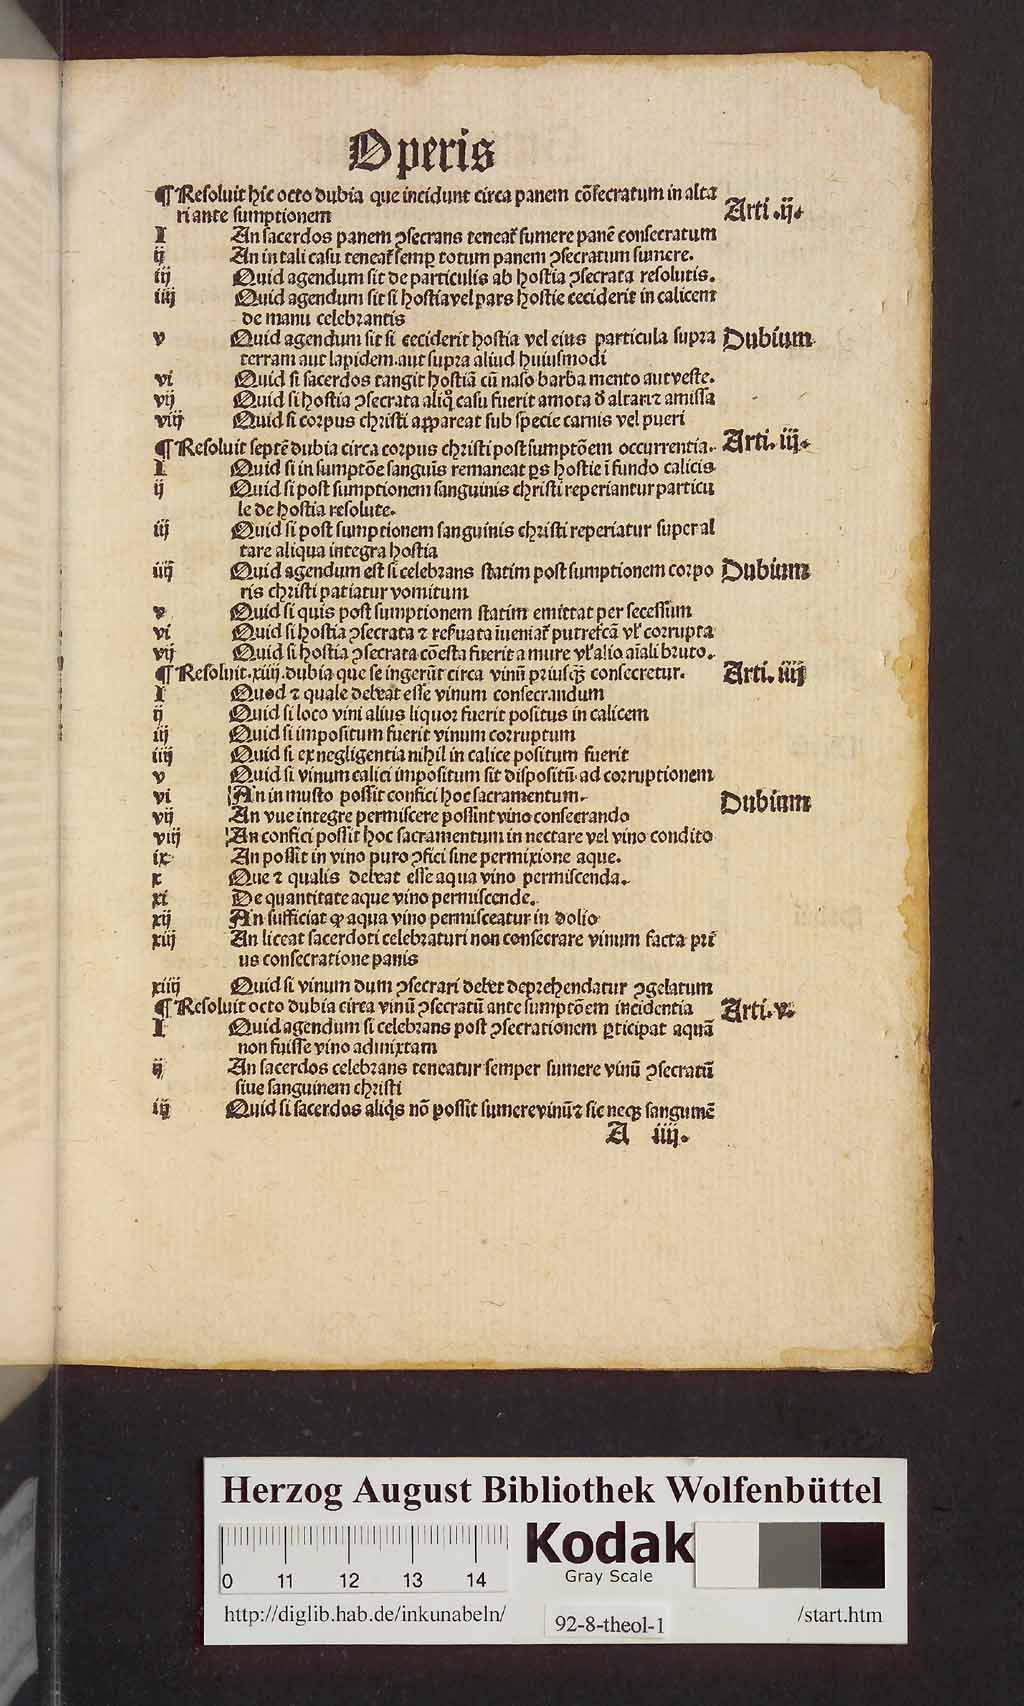 Operis
¶ Resoluit hic octo dubia que incidunt circa panem cōsecratum in alta
ri ante sumptionem
Arti .ij.
I An sacerdos panem ꝯsecrans teneat᷑ sumere panē consecratum
ij An in tali casu teneat᷑ semꝑ totum panem ꝯsecratum sumere.
iij Quid agendum sit de particulis ab hostia ꝯsecrata resolutis.
iiij Quid agendum sit si hostia vel pars hostie ceciderit in calicem
de manu celebrantis
v Quid agendum sit si ceciderit hostia vel eius particula supra
Dubium
terram aut lapidem.aut supra aliud huiusmodi
vi Quid si sacerdos tangit hostiā cū naso barba mento aut veste.
vij Quid si hostia ꝯsecrata aliq̊ casu fuerit amota ð altari ⁊ amissa
viij Quid si corpus christi aꝑpareat sub specie carnis vel pueri
¶ Resoluit septē dubia circa corpus christi post sumptōem occurrentia.
Arti. iij.
I Quid si in sumptōe sanguīs remaneat ꝑs hostie ī fundo calicis
ij Quid si post sumptionem sanguinis christi reperiantur particu
le de hostia resolute.
iij Quid si post sumptionem sanguinis christi reperiatur super al
tare aliqua integra hostia
iiij Quid agendum est si celebrans statim post sumptionem corpo
Dubium
ris christi patiatur vomitum
v Quid si quis post sumptionem statim emittat per secessum
vi Quid si hostia ꝯsecrata ⁊ reẜuata īueniat᷑ putrefcā vl̓ corrupta
vij Quid si hostia ꝯsecrata cōesta fuerit a mure vl̓ alio aīali bruto.
¶ Resoluit.xiiij.dubia que se ingerūt circa vinū priusqꝫ consecretur.
Arti. iiij
I Quod ⁊ quale debeat esse vinum consecrandum
ij Quid si loco vini alius liquor fuerit positus in calicem
iij Quid si impositum fuerit vinum corruptum
iiij Quid si ex negligentia nihil in calice positum fuerit
v Quid si vinum calici impositum sit dispositū ad corruptionem
vi An in musto possit confici hoc sacramentum.
Dubium
vij An vue integre permiscere possint vino consecrando
viij An confici possit hoc sacramentum in nectare vel vino condito
ix An possit in vino puro ꝯfici sine permixione aque.
x Que ⁊ qualis debeat esse aqua vino permiscenda.
xi De quantitate aque vino permiscende.
xij An sufficiat ꝙ aqua vino permisceatur in dolio
xiij An liceat sacerdoti celebraturi non consecrare vinum facta pri᷑
us consecratione panis
xiiij Quid si vinum dum ꝯsecrari debet deprehendatur ꝯgelatum
¶ Resoluit octo dubia circa vinū ꝯsecratū ante sumptōem incidentia
Arti. v.
I Quid agendum si celebrans post ꝯsecrationem ꝑticipat aquā
non fuisse vino admixtam
ij An sacerdos celebrans teneatur semper sumere vinū ꝯsecratū
siue sanguinem christi
iij Quid si sacerdos aliq̇s nō possit sumere vinū ⁊ sic neqꝫ sanguinē
A iiij.
Herzog August Bibliothek Wolfenbüttel
0 11 12 13 14
Kodak
Gray Scale
http://diglib.hab.de/inkunabeln/
92-8-theol-1
/start.htm